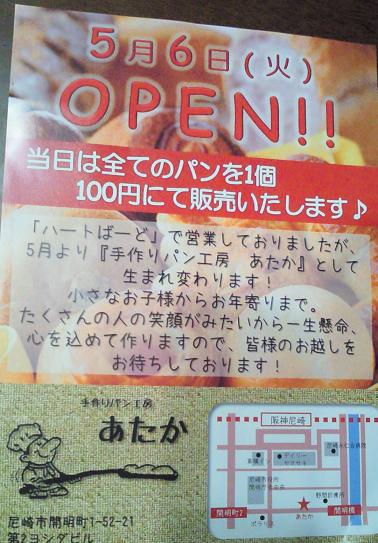 5月6日(火)
OPEN!!
当日は全てのパンを1個
100円にて販売いたします♪
「ハートばーど」で営業しておりましたが、
5月より『手作りパン工房　あたか』として
生まれ変わります!
小さなお子様からお年寄りまで。
たくさんの人の笑顔がみたいから一生懸命、
心を込めて作りますので、皆様のお越しを
お待ちしております!
手作りパン工房
あたか
尼崎市開明町1-52-21
第2ヨシダビル
阪神尼崎
デイリー
ヤマサキ
尼崎市役所
野間診療所
開明町2
あたか
開明橋
ポラリス